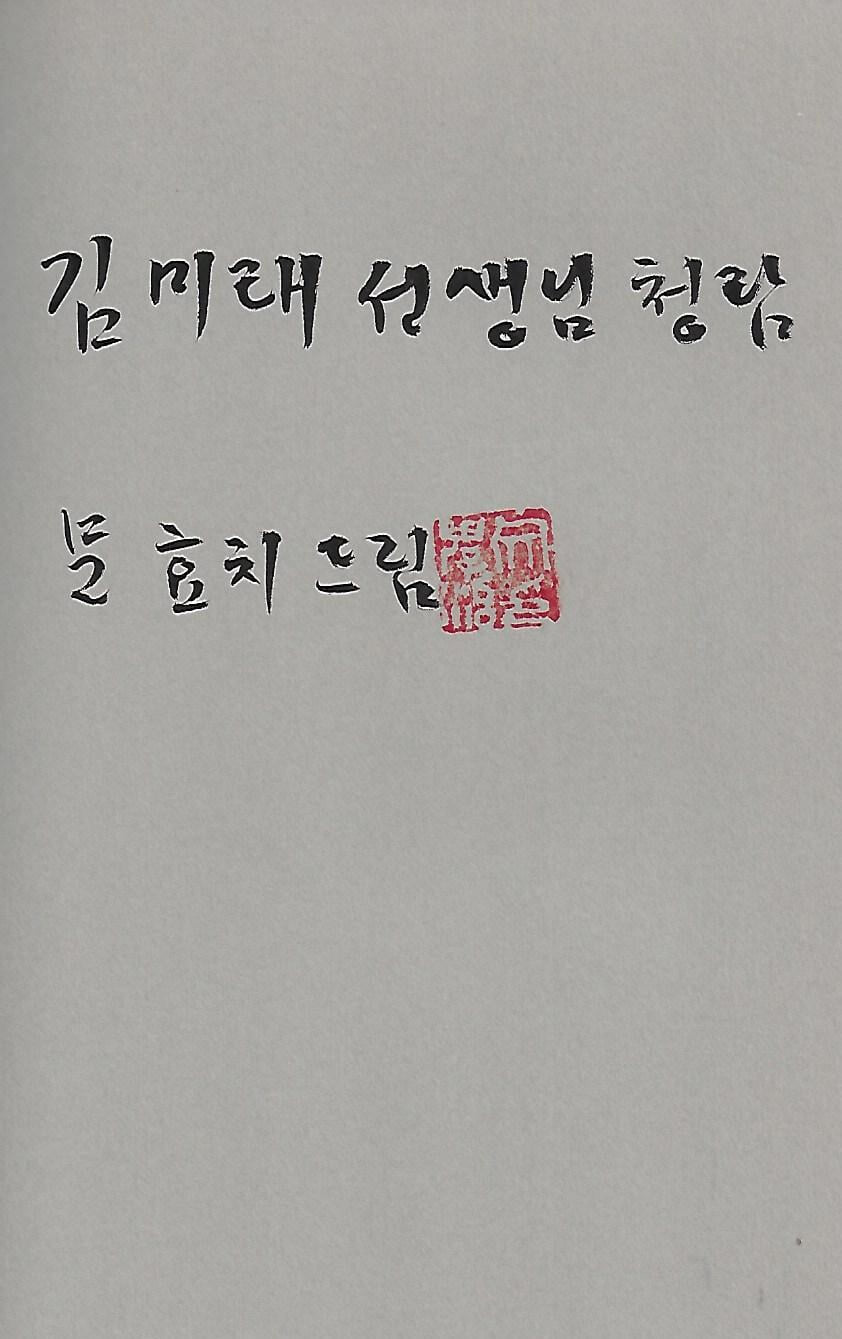 김미래 선생님 청람
문효치 드림